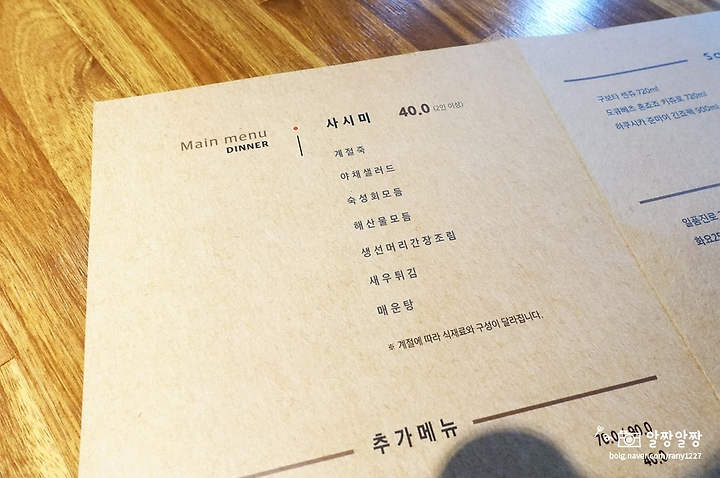 Main menu
DINNER
사시미 40.0 (2인 이상)
계절죽
야채샐러드
숙성회모듬
해산물모듬
생선머리간장조림
새우튀김
매운탕
※ 계절에 따라 식재료와 구성이 달라집니다.
추가메뉴
구보타 센쥬 720ml
도쿠베츠 혼죠죠 키쥬로 720ml
하쿠시카 준마이 긴죠팩 900ml
일품진로
화요25
알짱알짱
bolg.naver.com/rany1227